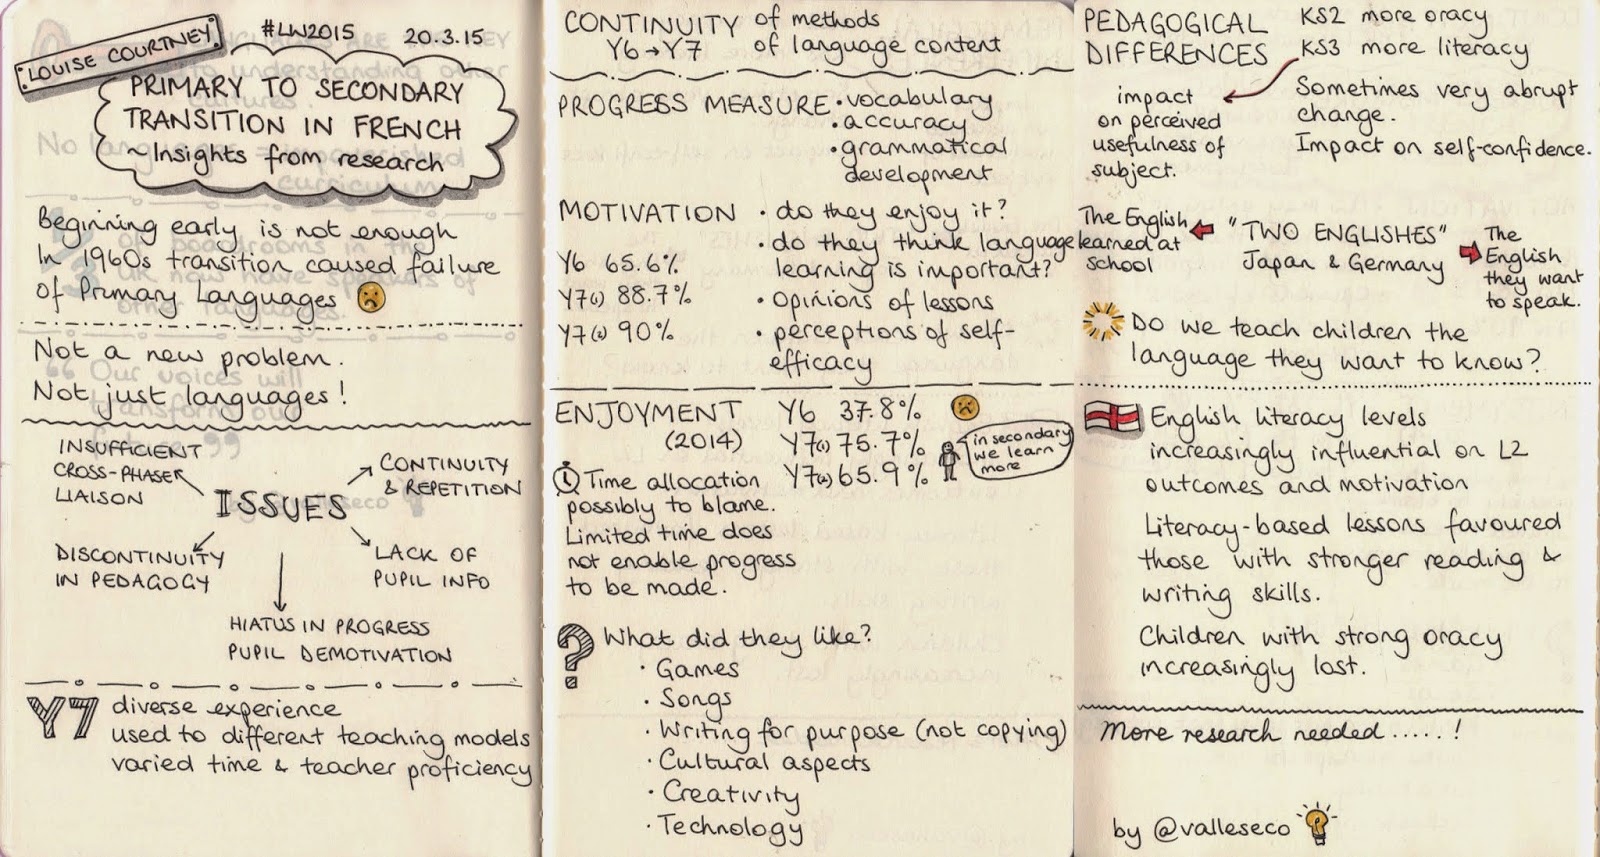 LOUISE COURTNEY
#LW2015 20.3.15
PRIMARY TO SECONDARY
TRANSITION IN FRENCH
~Insights from research
Beginning early is not enough
In 1960s transition caused failure
of Primary Languages
Not a new problem.
Not just languages!
INSUFFICIENT
CROSS-PHASE
LIAISON
CONTINUITY
& REPETITION
ISSUES
DISCONTINUITY
IN PEDAGOGY
LACK OF
PUPIL INFO
HIATUS IN PROGRESS
PUPIL DEMOTIVATION
Y7 diverse experience
used to different teaching models
varied time & teacher proficiency
CONTINUITY of methods
Y6 → Y7 of language content
PROGRESS MEASURE • vocabulary
• accuracy
• grammatical
development
MOTIVATION • do they enjoy it?
• do they think language
learning is important?
Y6 65.6%
Y7(1) 88.7%
• Opinions of lessons
Y7(2) 90%
• perceptions of self-
efficacy
ENJOYMENT
(2014)
Y6 37.8%
Y7(1) 75.7%
Y7(2) 65.9%
in secondary
we learn
more
Time allocation
possibly to blame.
Limited time does
not enable progress
to be made.
? What did they like?
• Games
• Songs
• Writing for purpose (not copying)
• Cultural aspects
• Creativity
• Technology
PEDAGOGICAL
DIFFERENCES
KS2 more oracy
KS3 more literacy
impact
on perceived
usefulness of
subject.
Sometimes very abrupt
change.
Impact on self-confidence.
The English
learned at
school
"TWO ENGLISHES"
Japan & Germany
The
English
they want
to speak.
Do we teach children the
language they want to know?
English literacy levels
increasingly influential on L2
outcomes and motivation
Literacy-based lessons favoured
those with stronger reading &
writing skills.
Children with strong oracy
increasingly lost.
More research needed.....!
by @valleseco